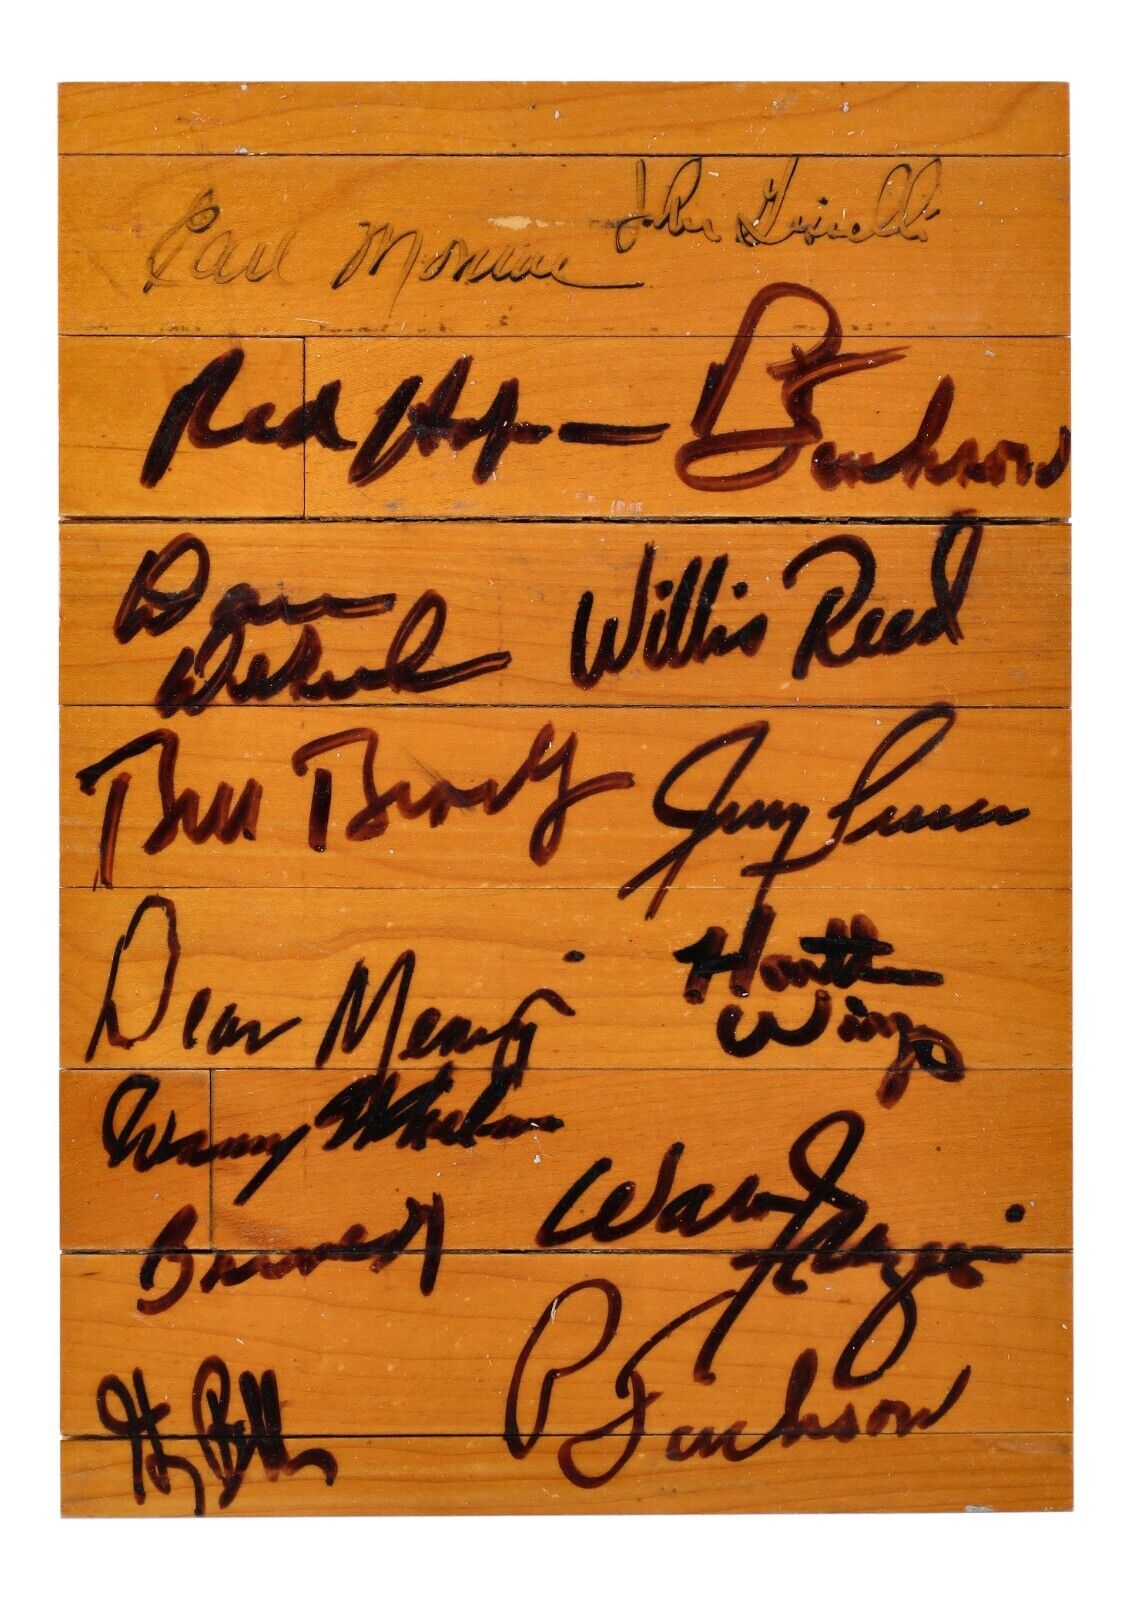 Earl Monroe
John Gianelli
Red Holzman
P Jackson
Dave
DeBusschere
Willis Reed
Bill Bradley
Jerry Lucas
Dean Meminger
Hawthorne
Wingo
Henry Bibby
Walt Frazier
P Jackson